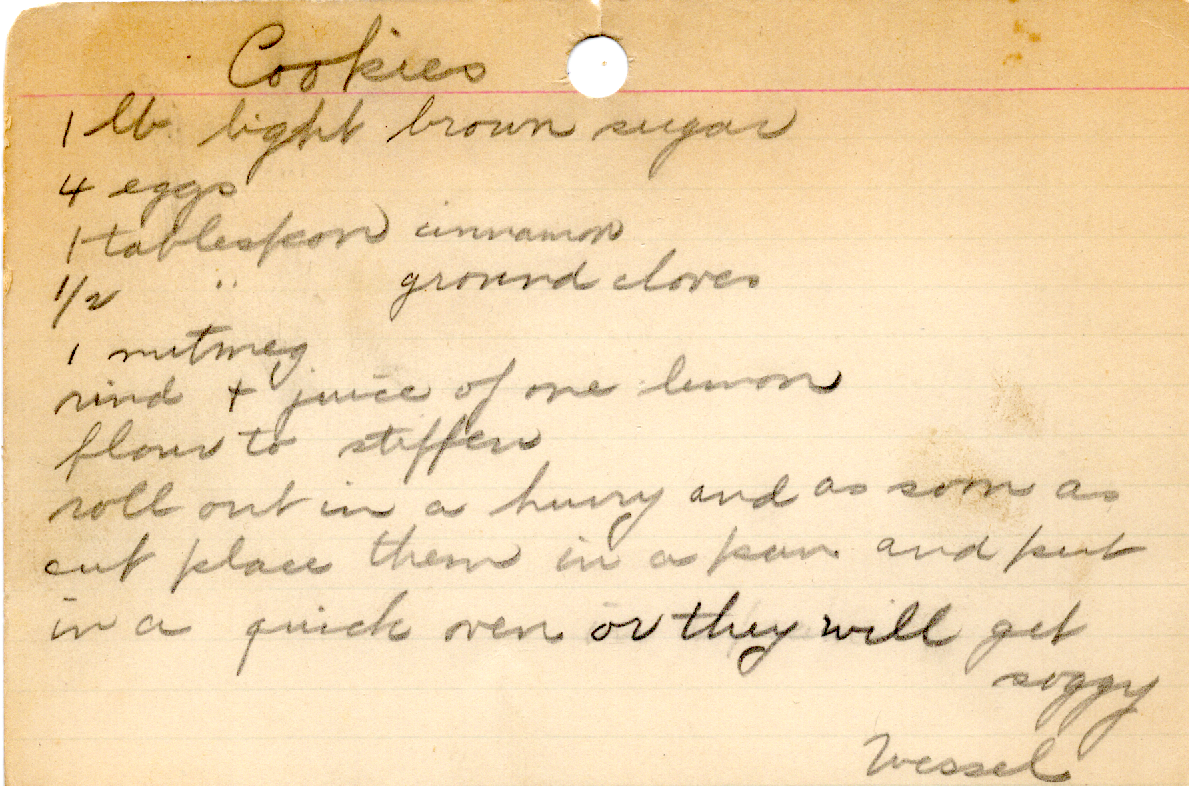 Cookies
1 lb light brown sugar
4 eggs
1 tablespoon cinnamon
1/2 " ground cloves
1 nutmeg
rind + juice of one lemon
flour to stiffen
roll out in a hurry and as soon as
cut place them in a pan and put
in a quick oven or they will get
soggy
Wessel